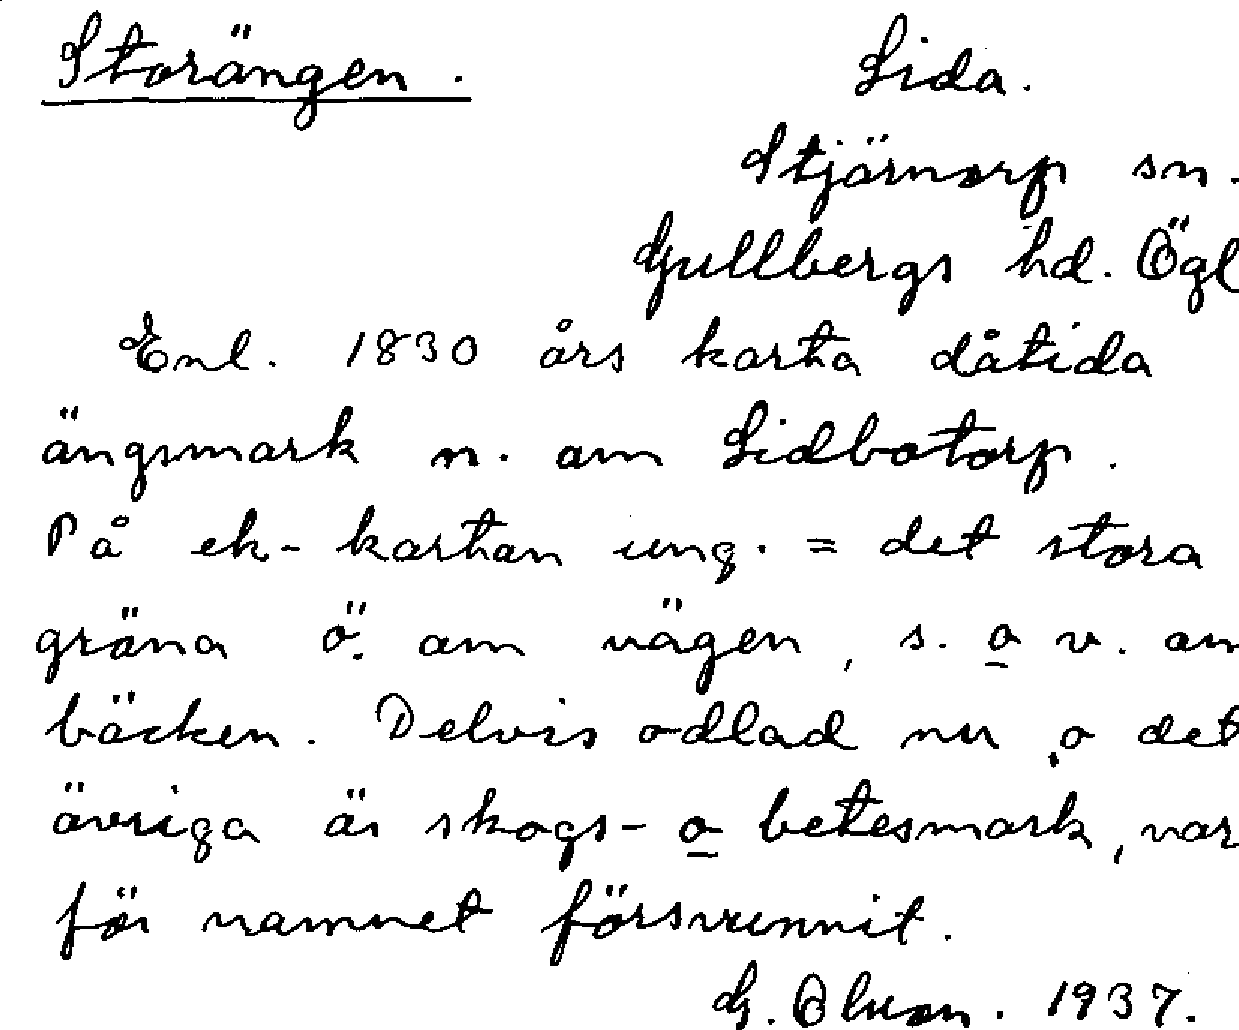 Storängen.
Lida.
Stjärnorp sn.
Gullbergs hd. Ögl
Enl. 1830 års karta dåtida
ängsmark n. om Lidbotorp.
På ek-kartan ung. = det stora
gröna ö. om vägen, s. o v. om
bäcken. Delvis odlad nu, o det
övriga är skogs- o betesmark, var
för namnet försvunnit.
G. Olsson. 1937.